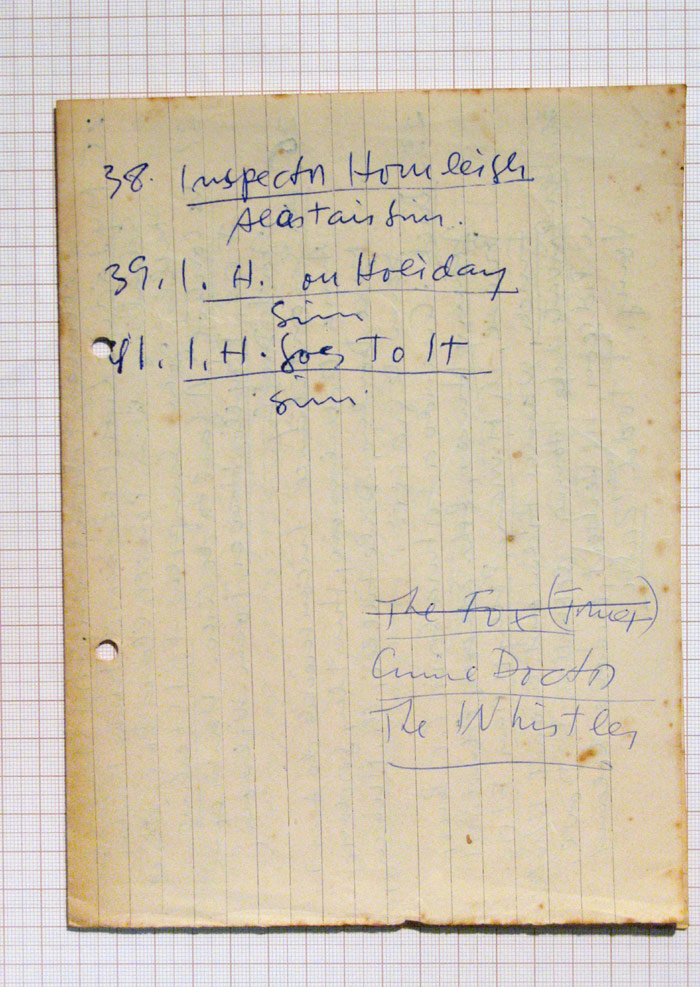 38. Inspector Hornleigh
Alastair Sim.
39. I. H. on Holiday
Sim
41. I. H. Goes To It
Sim
The Fox
Crime Doctor
The Whistler